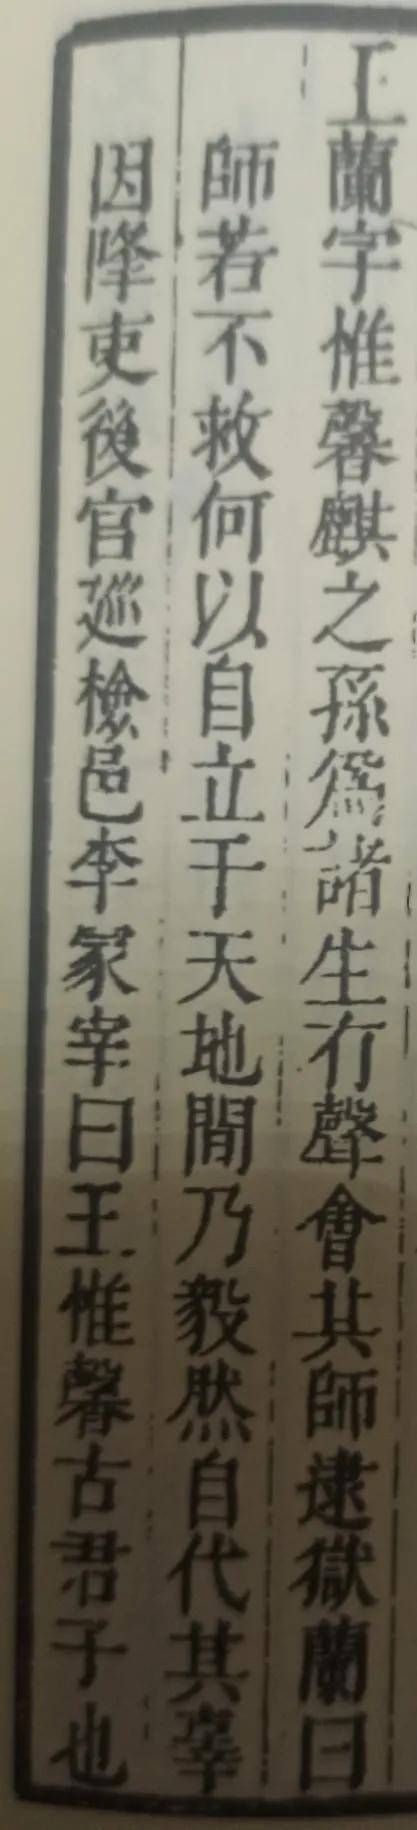 王蘭字惟馨麒之孫爲諸生有聲會其師逮獄蘭曰
師若不救何以自立于天地間乃毅然自代其辜
因降吏後官巡檢邑李冢宰曰王惟馨古君子也